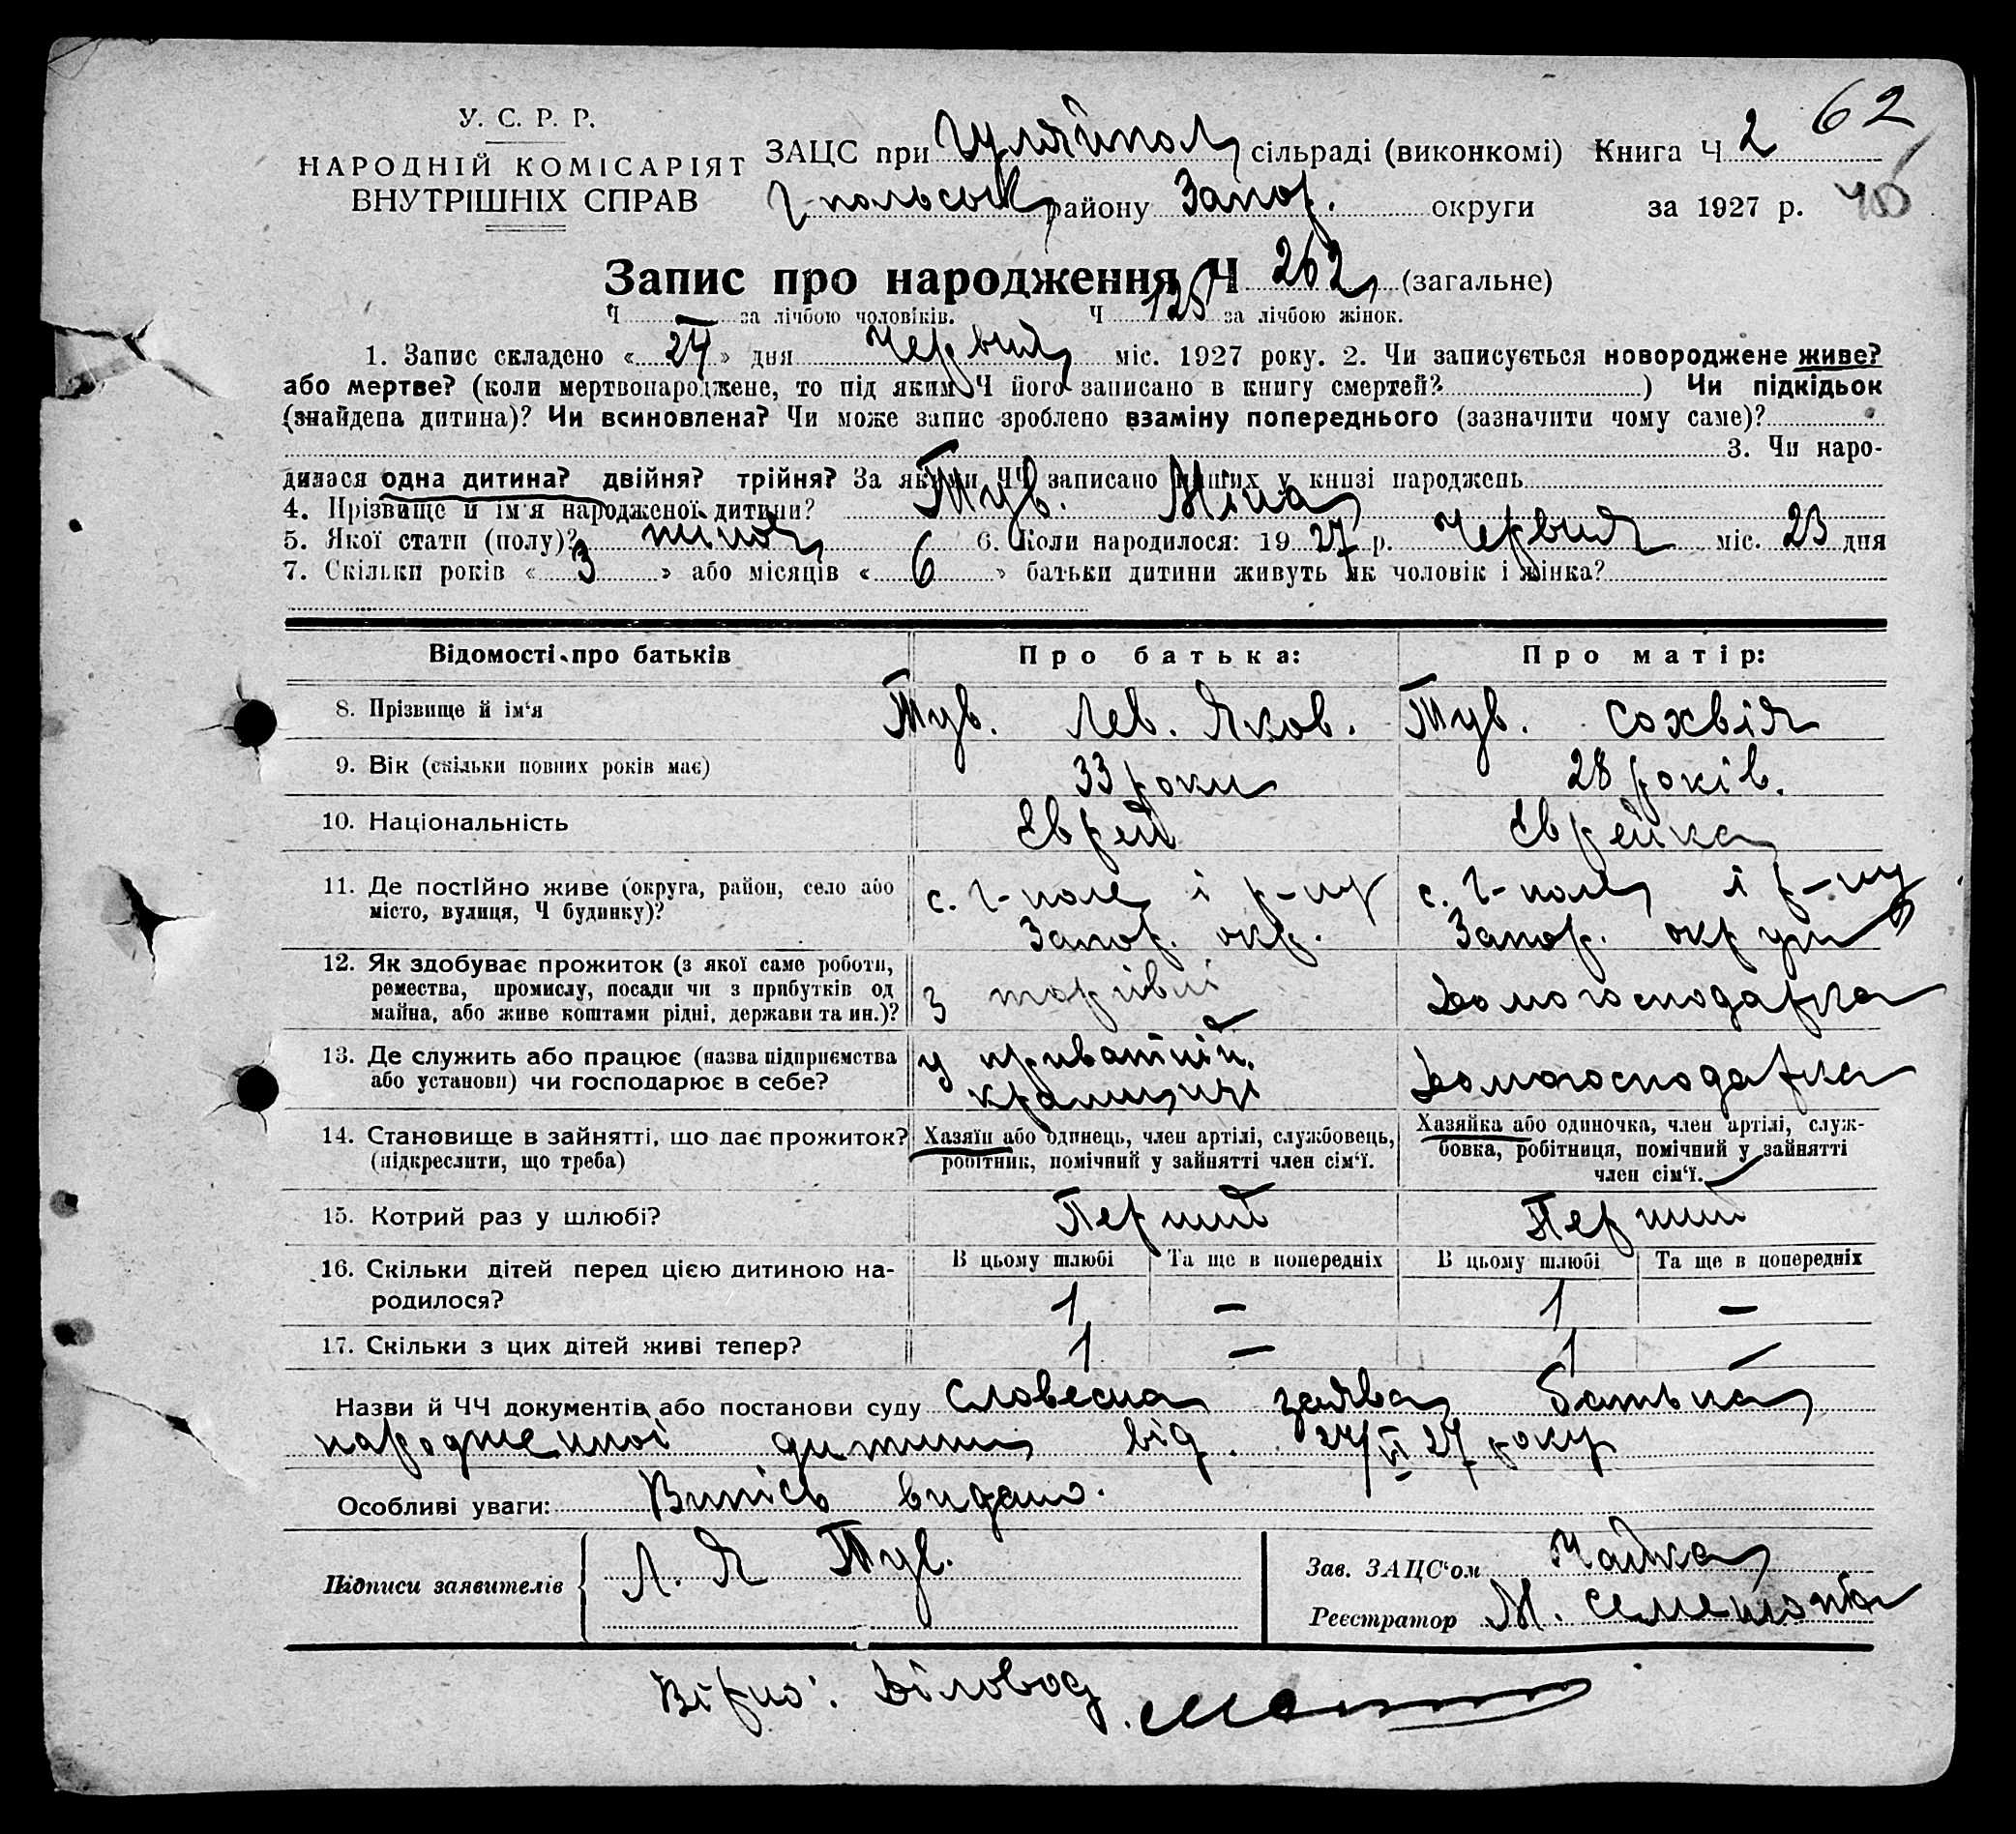 62
У. С. Р. Р.
НАРОДНІЙ КОМІСАРІЯТ
ВНУТРІШНІХ СПРАВ
ЗАЦС при Гуляйпол. сільраді (виконкомі) Книга Ч 2
Г-польськ району Запор. округи за 1927 р.
Запис про народження Ч 262 (загальне)
Ч за лічбою чоловіків. Ч 125 за лічбою жінок.
1. Запис складено «24» дня Червня міс. 1927 року. 2. Чи записується новороджене живе?
або мертве? (коли мертвонароджене, то під яким Ч його записано в книгу смертей? ) Чи підкідьок
(знайдена дитина)? Чи всиновлена? Чи може запис зроблено взаміну попереднього (зазначити чому саме)?
3. Чи наро-
дилася одна дитина? двійня? трійня? За якими ЧЧ записано інших у книзі народжень
4. Прізвище й ім'я народженої дитини? Тув. Міна
5. Якої стати (полу)? жіноч. 6. Коли народилося: 1927 р. Червня міс. 23 дня
7. Скільки років «3» або місяців «6» батьки дитини живуть як чоловік і жінка?
Відомості про батьків Про батька: Про матір:
8. Прізвище й ім'я Тув. Лев. Яков. Тув. Сохвія
9. Вік (скільки повних років має) 33 роки 28 років.
10. Національність Єврей Єврейка
11. Де постійно живе (округа, район, село або с. Г-поле і р-ну с. Г-поле і р-ну
місто, вулиця, Ч будинку)? Запор. окр. Запор. округи
12. Як здобуває прожиток (з якої саме роботи,
ремества, промислу, посади чи з прибутків од з торгівлі Домогосподарка
майна, або живе коштами рідні, держави та ин.)?
13. Де служить або працює (назва підприємства у приватній Домогосподарка
або установи) чи господарює в себе? крамниці
14. Становище в зайнятті, що дає прожиток? Хазяїн або одинець, член артілі, службовець, Хазяйка або одиночка, член артілі, служ-
(підкреслити, що треба) робітник, помічний у зайнятті член сім'ї. бовка, робітниця, помічний у зайнятті
член сім'ї.
15. Котрий раз у шлюбі? Перший Перший
16. Скільки дітей перед цією дитиною на- В цьому шлюбі Та ще в попередніх В цьому шлюбі Та ще в попередніх
родилося? 1 – 1 –
17. Скільки з цих дітей живі тепер? 1 – 1 –
Назви й ЧЧ документів або постанови суду Словесна заява батька
народженної дитини від 24/VI 27 року
Особливі уваги: Випісь видано.
Підписи заявителів Л. Я Тув. Зав. ЗАЦС'ом Чайка
Реєстратор М. Семен
Вірно: Діловод